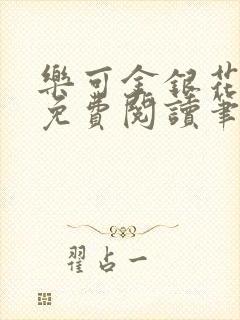 樂可金銀花
免費閱讀筆
翟占一